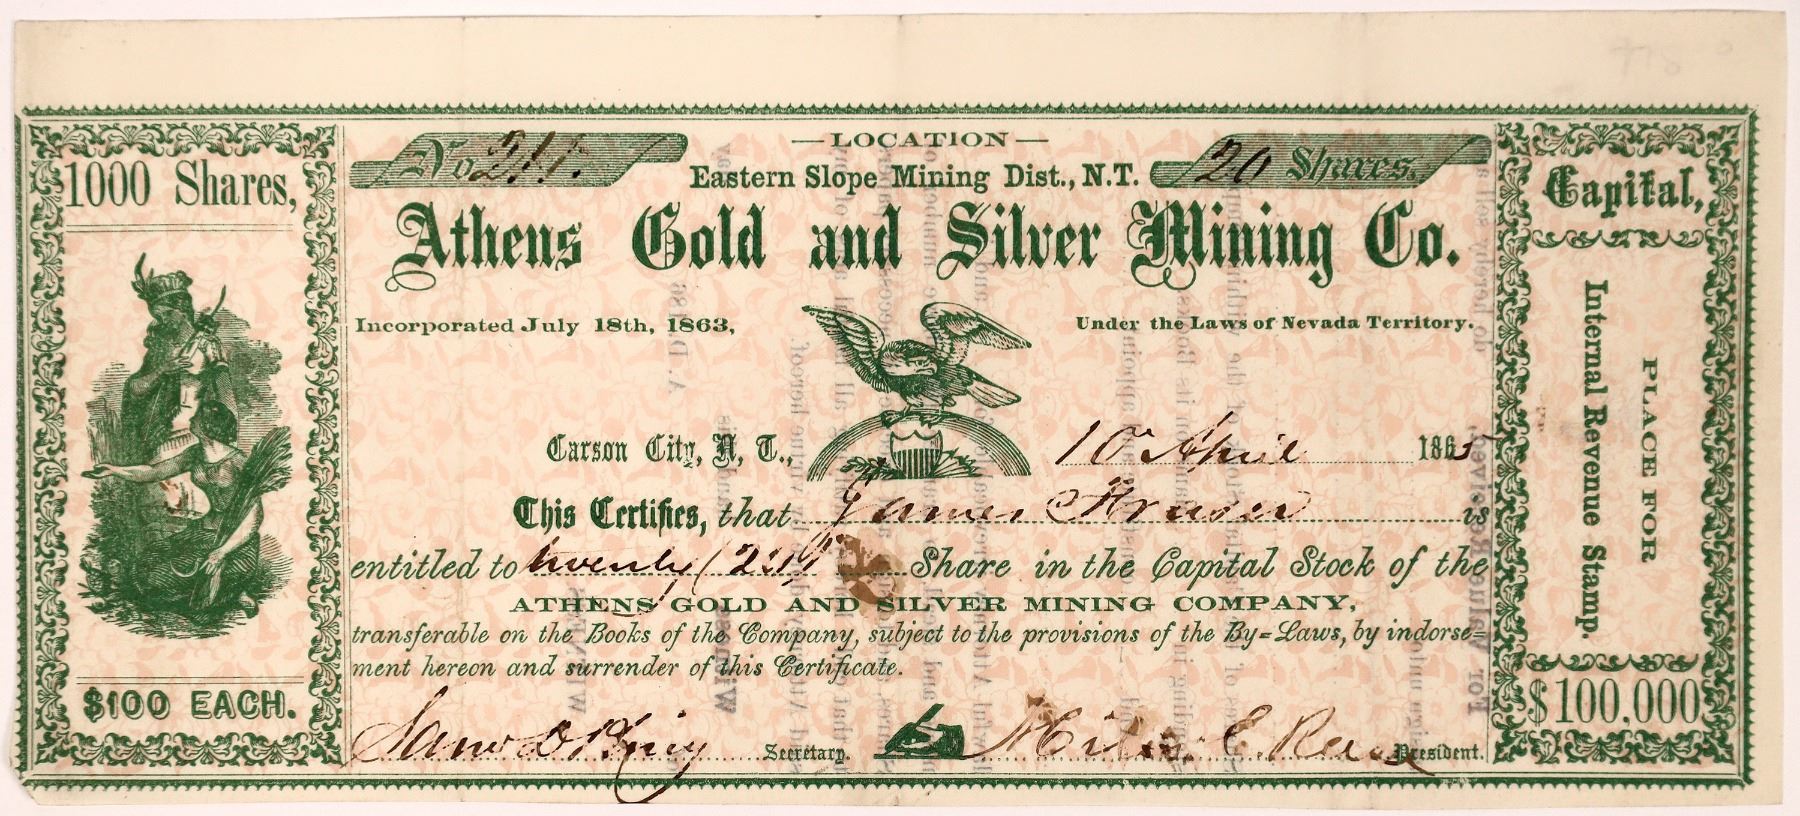 1000 Shares,
$100 EACH.
No 211.
— LOCATION —
Eastern Slope Mining Dist., N.T.
20 Shares.
Athens Gold and Silver Mining Co.
Incorporated July 18th, 1863,
Under the Laws of Nevada Territory.
Carson City, N, T., 10 April 1865
This Certifies, that James Fraser is
entitled to twenty Share in the Capital Stock of the
ATHENS GOLD AND SILVER MINING COMPANY,
transferable on the Books of the Company, subject to the provisions of the By=Laws, by indorse=
ment hereon and surrender of this Certificate.
Secretary.
President.
Capital,
PLACE FOR
Internal Revenue Stamp.
$100,000